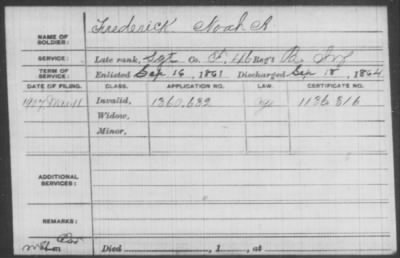 NAME OF SOLDIER: Frederick Noah A
SERVICE: Late rank, Sgt Co. F, 46 Reg't Pa. Inf
TERM OF SERVICE: Enlisted Sep 16, 1861 Discharged Sep 18, 1864
DATE OF FILING. CLASS. APPLICATION NO. LAW. CERTIFICATE NO.
1907 Mar 11 Invalid, 1360,632 1136 816
Widow,
Minor,
ADDITIONAL SERVICES:
REMARKS:
Died , 1 , at